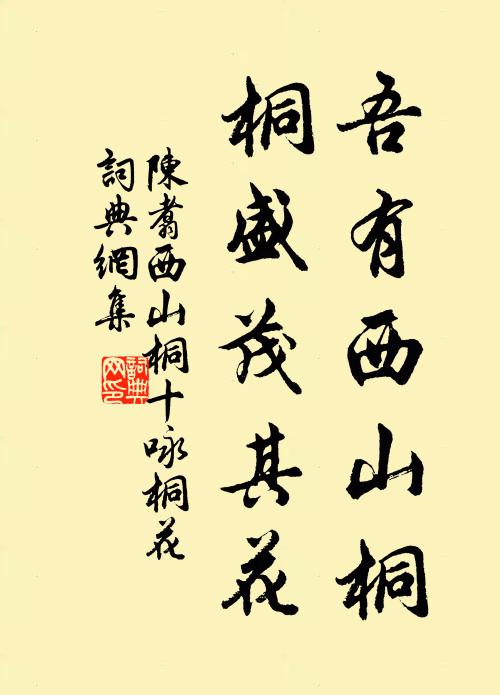 吾有西山桐
桐盛茂其花
陳翥西山桐十咏桐花
詞典網集
詞典网印